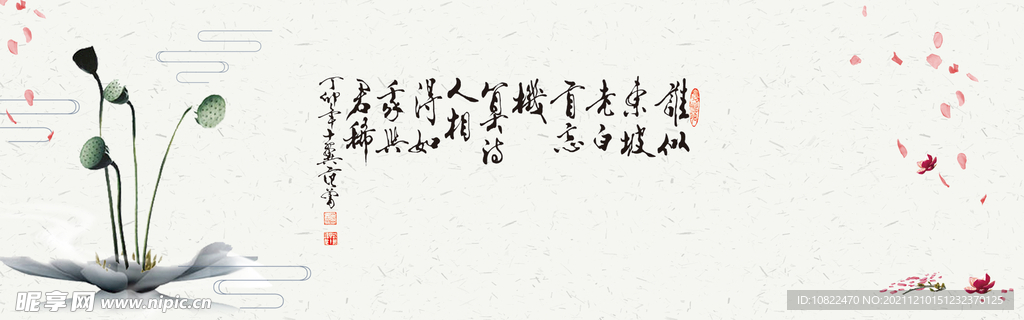 誰似
東坡
老白
首忘
機
算诗
人相
得如
我與
君稀
丁卯年十翼范曾
昵享网 www.nipic.cn
ID:10822470 NO:20211210151232370125